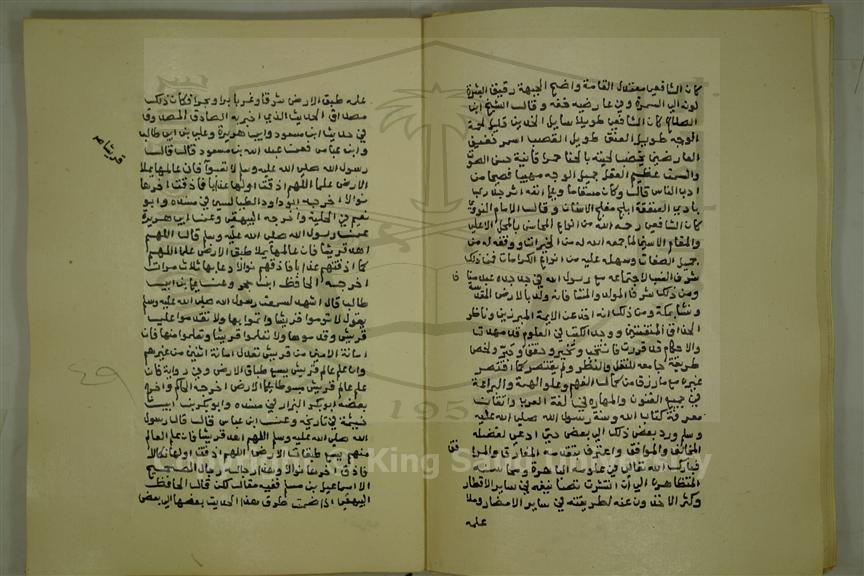 كان الشافعي معتدل القامة واضح الجبهة رقيق البشرة
لونه الى السمرة وفي عارضيه خفة وقالب الشيخ ابن
الصلاح كان الشافعي طويلا سايل الخدين قليل لحمة
الوجه طويل العنق طويل القصب اسمر خفيف
العارضين يخضب لحيته بالحنا حمرا قانية حسن الصوت
والسمت عظيم العقل جميل الوجه مهيبا فصيحا من
ادب الناس قال وكان مسقاما وفي انفه اثر جدري
بادي العنفقة ابلج مفلج الاسنان وقالب الامام النووي
كان الشافعي رحمه الله من انواع المحاسن بالمحل الاعلى
والمقام الاسنى لما جمعه الله له من الخيرات ووفقه له من
جميل الصفات وسهله عليه من انواع الكرامات فمن ذلك
شرف النسب لاجتماعه مع رسول الله في جده عبد مناف
ومن ذلك شرف المولد والمنشا فانه ولد بالارض المقدسة
ونشا بمكة ومن ذلك انه اخذ عن الايمة المبرزين وناظر
الحذاق المتقنين ووجد الكتب في العلوم قد مهدت
والاحكام قد قررت فانتخب وتخير وحقق وحبر ولخص
طريقة جامعة للنقل والنظر ولم يقتصر كما اقتصر
غيره مع ما رزق من كمال الفهم وعلو الهمة والبراعة
في جميع الفنون والمهارة في لغة العرب واتقان
معرفة كتاب الله وسنة رسول الله صلى الله عليه
وسلم ورد بعض ذلك الى بعض حتى اذعن لفضله
المخالف والموافق واعترف بتقدمه المفارق والمرافق
فبارك الله تعالى في علومه الباهرة ومحاسنه
المتظاهرة الى ان انتشرت تصانيفه في ساير الاقطار
وكثر الاخذون عنه لطريقته في ساير الامصار وملا
علمه
علمه طبق الارض شرقا وغربا برا وبحرا فكان ذلك
مصداق الحديث الذي اخبر به الصادق المصدوق
في حديث ابن مسعود وابي هريرة وعلي بن ابي طالب
وابن عباس فعن عبد الله بن مسعود قال قالب
رسول الله صلى الله عليه وسلم لا تسبوا قريشا فان عالمها يملا
الارض علما اللهم اذقت اولها عذابا فاذق اخرها
نوالا اخرجه ابو داود الطيالسي في مسنده وابو
نعيم في الحلية واخرجه البيهقي وعن ابي هريرة
عن رسول الله صلى الله عليه وسلم قالب اللهم
اهد قريشا فان عالمها يملا طبق الارض علما اللهم
كما اذقتهم عذابا فاذقهم نوالا دعا بها ثلاث مرات
اخرجه الحافظ ابن حجر وعن علي بن ابي
طالب قال اشهد لسمعت رسول الله صلى الله عليه وسلم
يقول لا تؤموا قريشا واتموا بها ولا تقدموا على
قريش وقدموها ولا تعلموا قريشا وتعلموا منها فان
امانة الامين من قريش تعدل امانة اثنين من غيرهم
وان علم عالم قريش يسع طباق الارض وفي رواية فان
علم عالم قريش مبسوط على الارض اخرجه الحاكم واخرج
بعضه ابو بكر البزار في مسنده وابو بكر بن ابي
خيثمة في تاريخه وعن ابن عباس قال قال رسول
الله صلى الله عليه وسلم اللهم اهد قريشا فان علم العالم
منهم يسع طبقات الارض اللهم اذقت اولها نكالا
فاذق اخرها نوالا وهذا رجاله رجال الصحيح
الا اسماعيل بن مسلم ففيه مقال لكن قال الحافظ
البيهقي اذا ضمت طرق هذا الحديث بعضها الى بعض
King Saud University
195